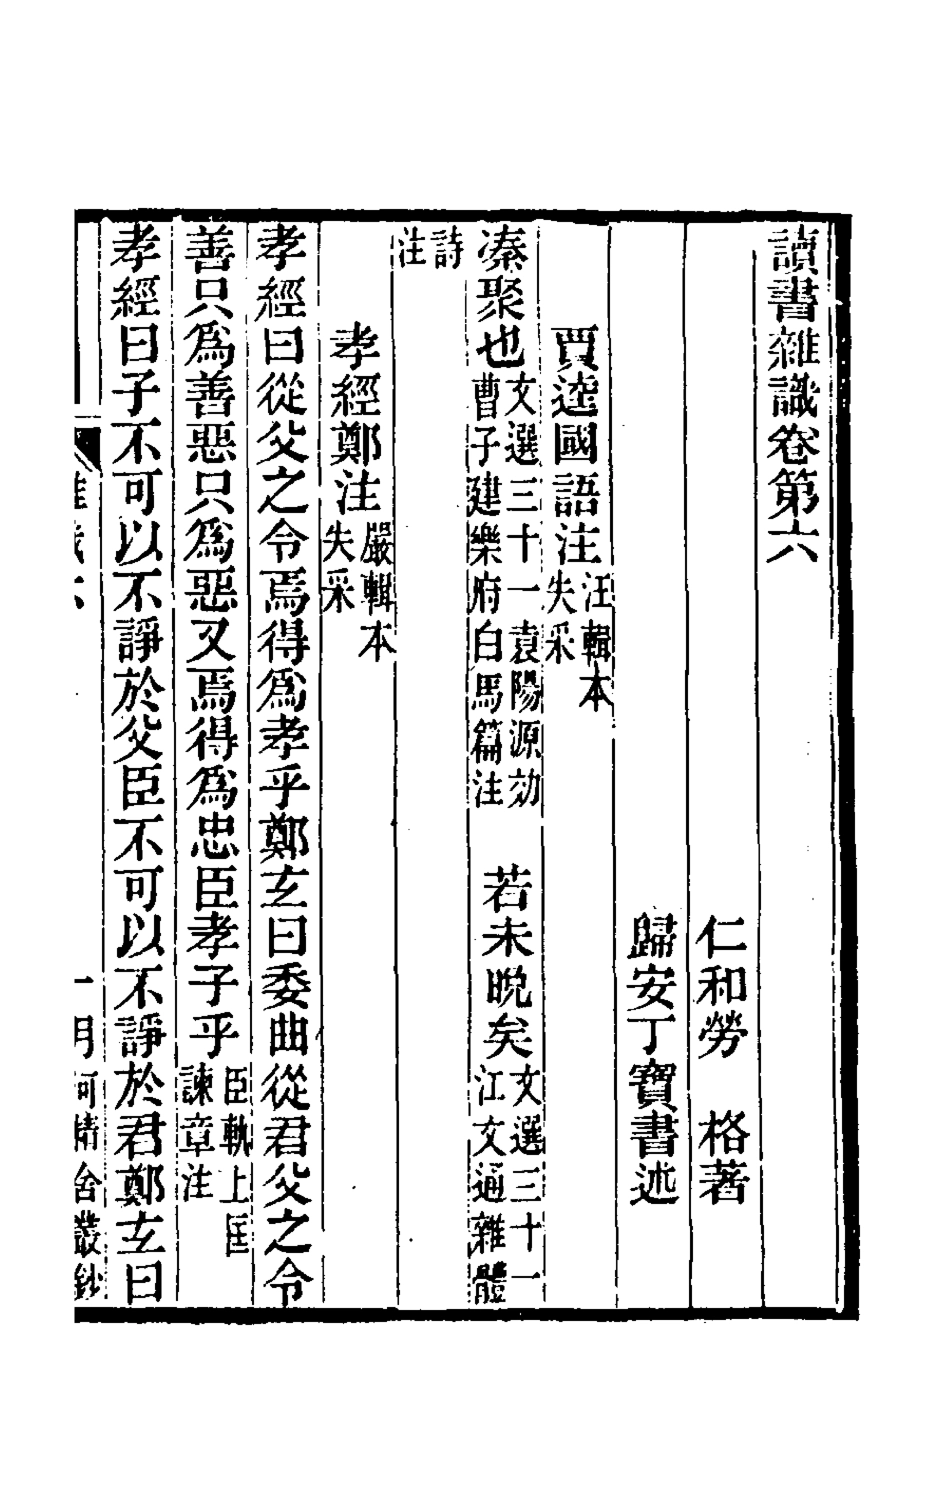 讀書雜識卷第六
仁和勞　格著
歸安丁寶書述
賈逵國語注汪輯本失采
溱聚也文選三十一袁陽源効曹子建樂府白馬篇注　若未晩矣文選三十一江文通雜體
詩注
孝經鄭注嚴輯本失采
孝經曰從父之令焉得爲孝乎鄭玄曰委曲從君父之令
善只爲善惡只爲惡又焉得爲忠臣孝子乎臣軌上匡諫章注
孝經曰子不可以不諍於父臣不可以不諍於君鄭玄曰
一　月河精舍叢鈔